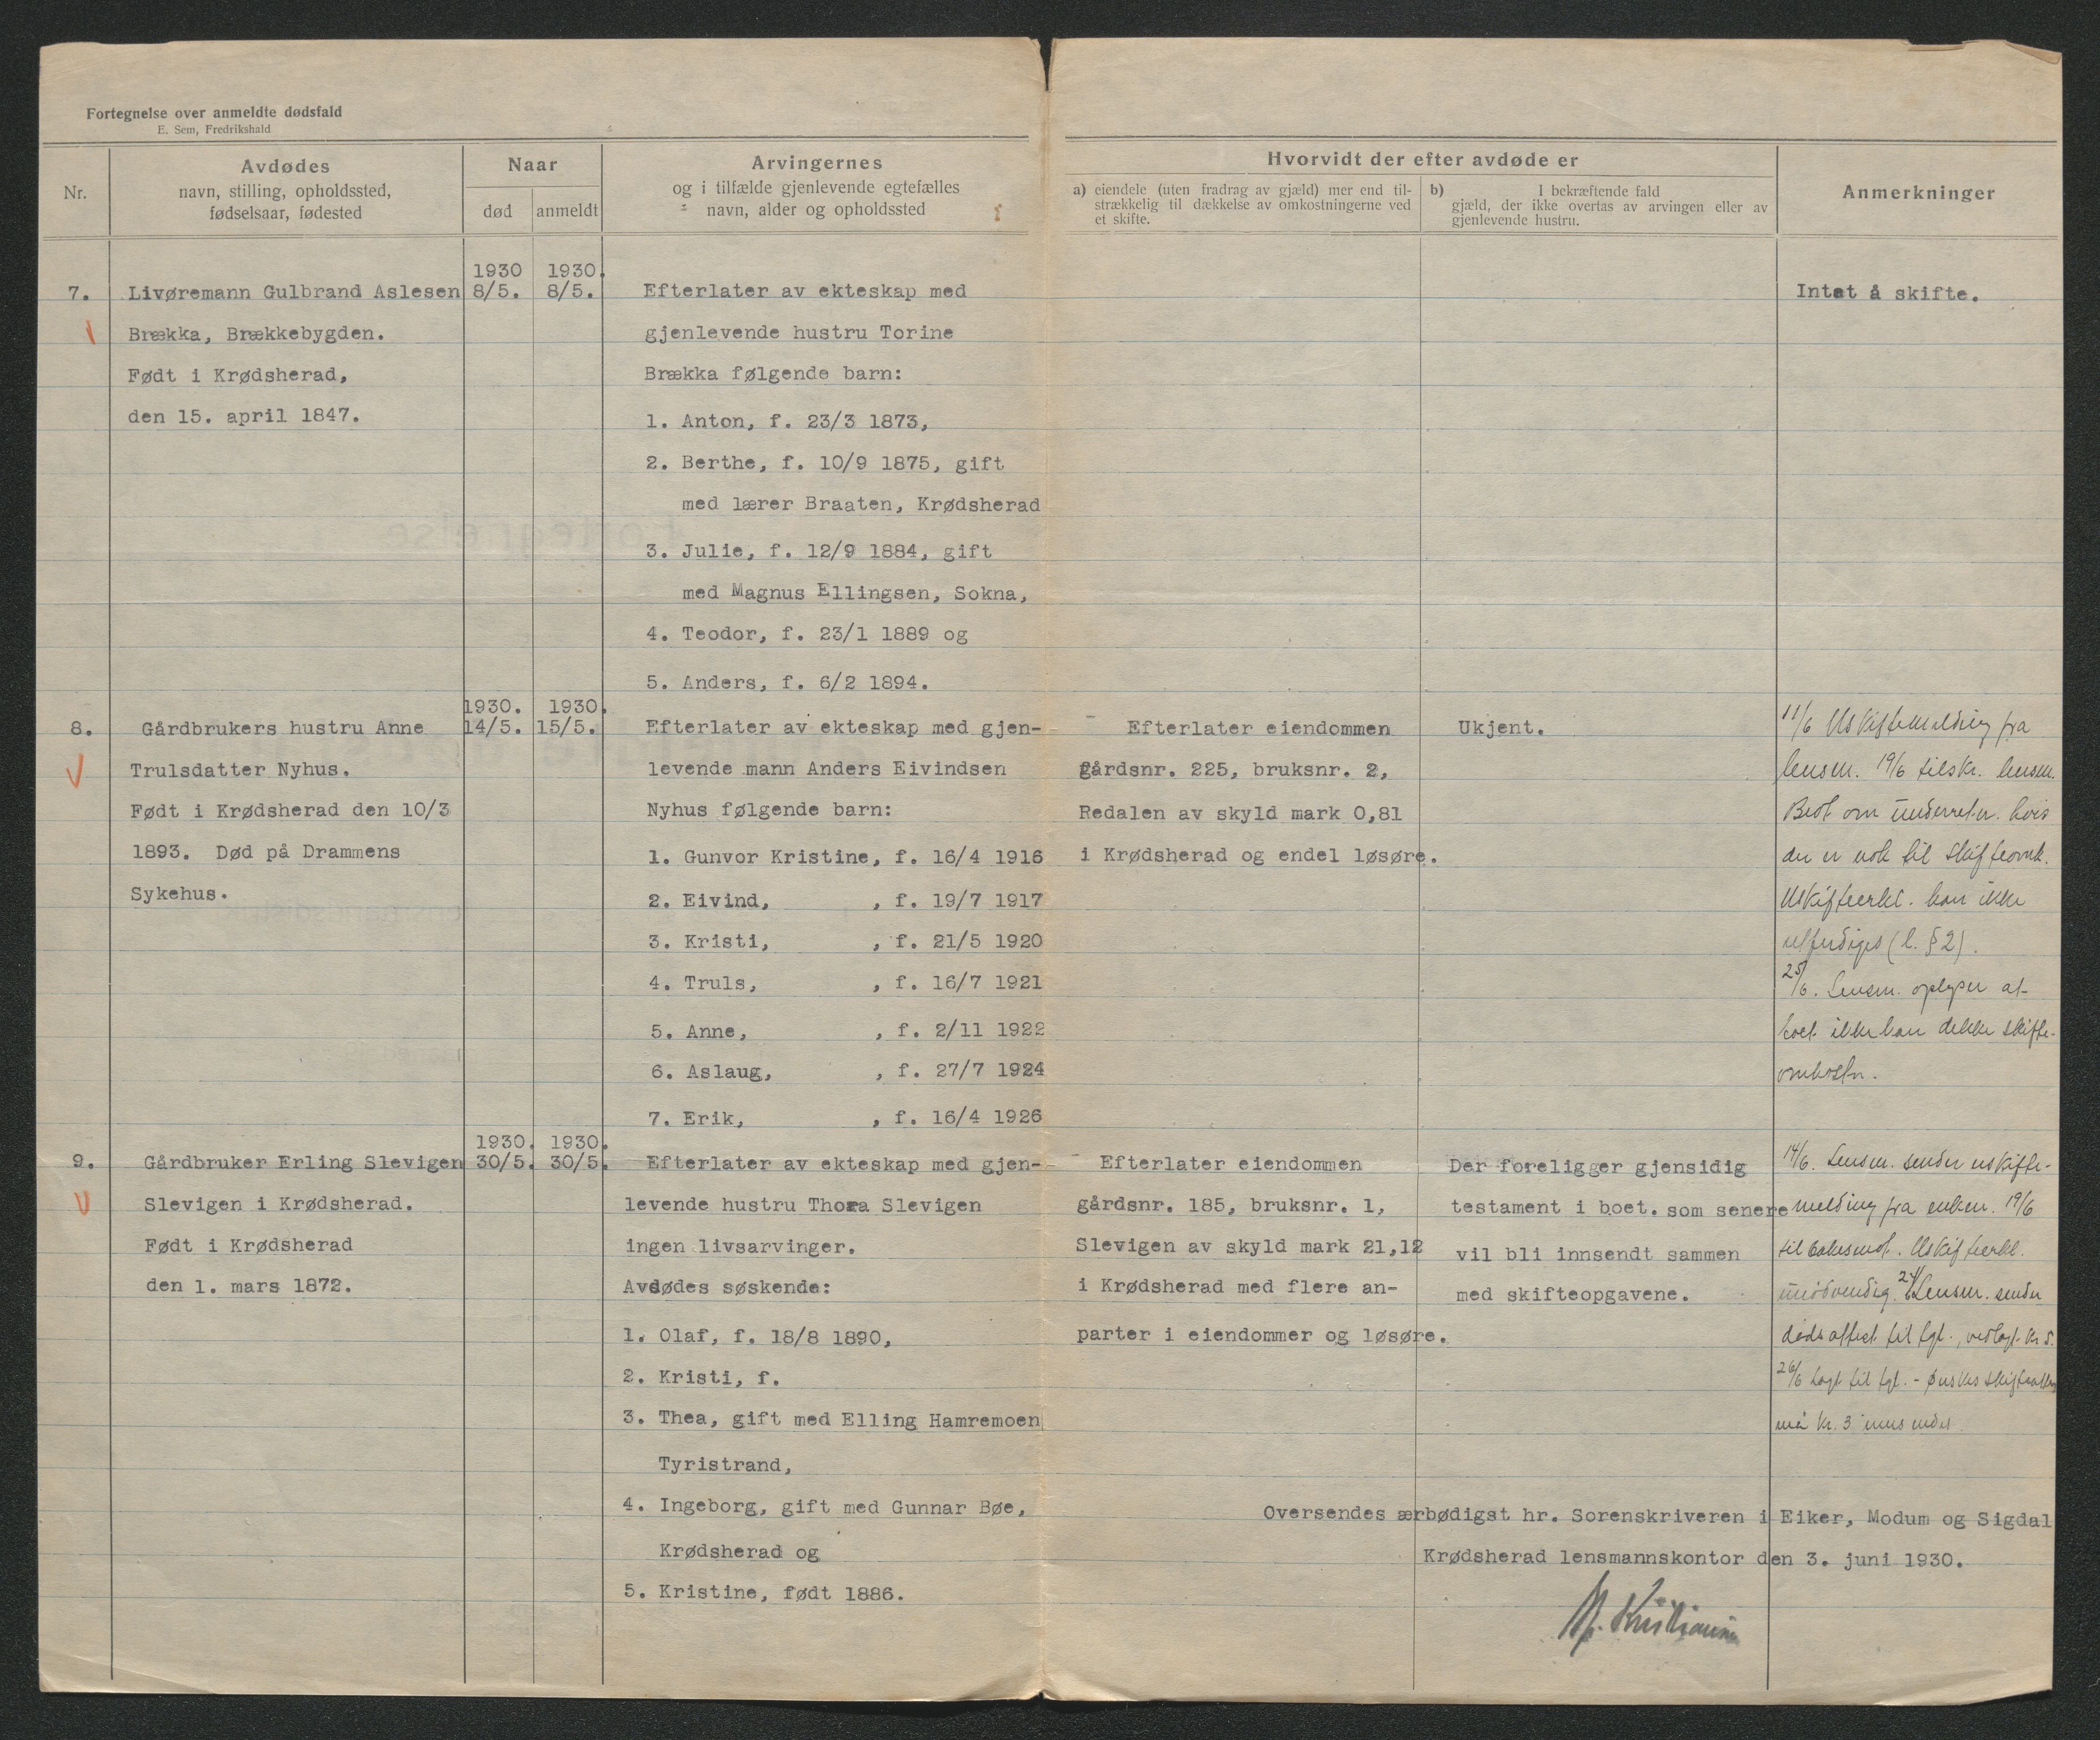 Fortegnelse over anmeldte dødsfald
E. Sem, Fredrikshald
Nr.
Avdødes
navn, stilling, opholdssted,
fødselsaar, fødested
Naar
død
anmeldt
Arvingernes
og i tilfælde gjenlevende egtefælles
navn, alder og opholdssted
Hvorvidt der efter avdøde er
a) eiendele (uten fradrag av gjæld) mer end til-
strækkelig til dækkelse av omkostningerne ved
et skifte.
b) I bekræftende fald
gjæld, der ikke overtas av arvingen eller av
gjenlevende hustru.
Anmerkninger
7.
Livøremann Gulbrand Aslesen
Brækka, Brækkebygden.
Født i Krødsherad,
den 15. april 1847.
1930
8/5.
1930.
8/5.
Efterlater av ekteskap med
gjenlevende hustru Torine
Brækka følgende barn:
1. Anton, f. 23/3 1873,
2. Berthe, f. 10/9 1875, gift
med lærer Braaten, Krødsherad
3. Julie, f. 12/9 1884, gift
med Magnus Ellingsen, Sokna,
4. Teodor, f. 23/1 1889 og
5. Anders, f. 6/2 1894.
Intet å skifte.
8.
Gårdbrukers hustru Anne
Trulsdatter Nyhus.
Født i Krødsherad den 10/3
1893. Død på Drammens
Sykehus.
1930.
14/5.
1930.
15/5.
Efterlater av ekteskap med gjen-
levende mann Anders Eivindsen
Nyhus følgende barn:
1. Gunvor Kristine, f. 16/4 1916
2. Eivind, , f. 19/7 1917
3. Kristi, , f. 21/5 1920
4. Truls, , f. 16/7 1921
5. Anne, , f. 2/11 1922
6. Aslaug, , f. 27/7 1924
7. Erik, , f. 16/4 1926
Efterlater eiendommen
gårdsnr. 225, bruksnr. 2,
Redalen av skyld mark 0,81
i Krødsherad og endel løsøre.
Ukjent.
11/6 Uskiftemelding fra
lensm. 19/6 tilskr. lensm.
Bedt om underretn. hvis
der er nok til skifteomk.
Uskifteerkl. kan ikke
utferdiges (l. § 2).
25/6. Lensm. oplyser at
boet ikke kan dekke skifte-
omkostn.
9.
Gårdbruker Erling Slevigen
Slevigen i Krødsherad.
Født i Krødsherad
den 1. mars 1872.
1930.
30/5.
1930.
30/5.
Efterlater av ekteskap med gjen-
levende hustru Thora Slevigen
ingen livsarvinger.
Avdødes søskende:
1. Olaf, f. 18/8 1890,
2. Kristi, f.
3. Thea, gift med Elling Hamremoen
Tyristrand,
4. Ingeborg, gift med Gunnar Bøe,
Krødsherad og
5. Kristine, født 1886.
Efterlater eiendommen
gårdsnr. 185, bruksnr. 1,
Slevigen av skyld mark 21,12
i Krødsherad med flere an-
parter i eiendommer og løsøre.
Der foreligger gjensidig
testament i boet. som senere
vil bli innsendt sammen
med skifteopgavene.
14/6. Lensm. sender uskifte-
melding fra enken. 19/6
Uskifteerkl.
unødvendig. Lensm. sender
dødsattest til tgl., vedlagt kr. 5.
26/6 Lagt til tgl. - Ønskes
må kr. 3 innsendes.
Oversendes ærbødigst hr. Sorenskriveren i Eiker, Modum og Sigdal
Krødsherad lensmannskontor den 3. juni 1930.